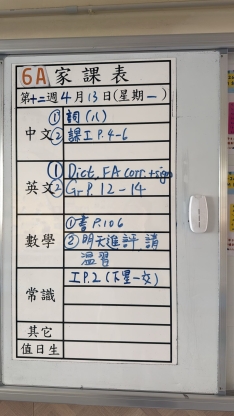 6A 家課表
第十二週4月13日(星期一)
中文
① 詞(八)
② 課工P.4-6
英文
① Dict, FA corr.+sign
② Gr P.12-14
數學
① 書P.106
② 明天進評,請
溫習
常識
工P.2(下星一交)
其它
值日生